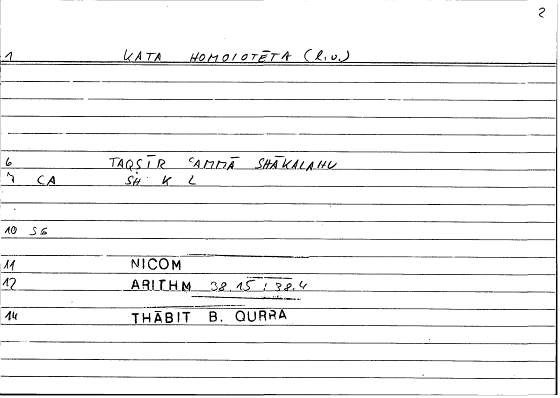 2
1 KATA HOMOIOTĒTA (l.u.)
6 TAQṢĪR ʿAMMĀ SHĀKALAHU
7 CA SH K L
10 SG
11 NICOM
12 ARITHM 38.15 ; 38.4
14 THĀBIT B. QURRA